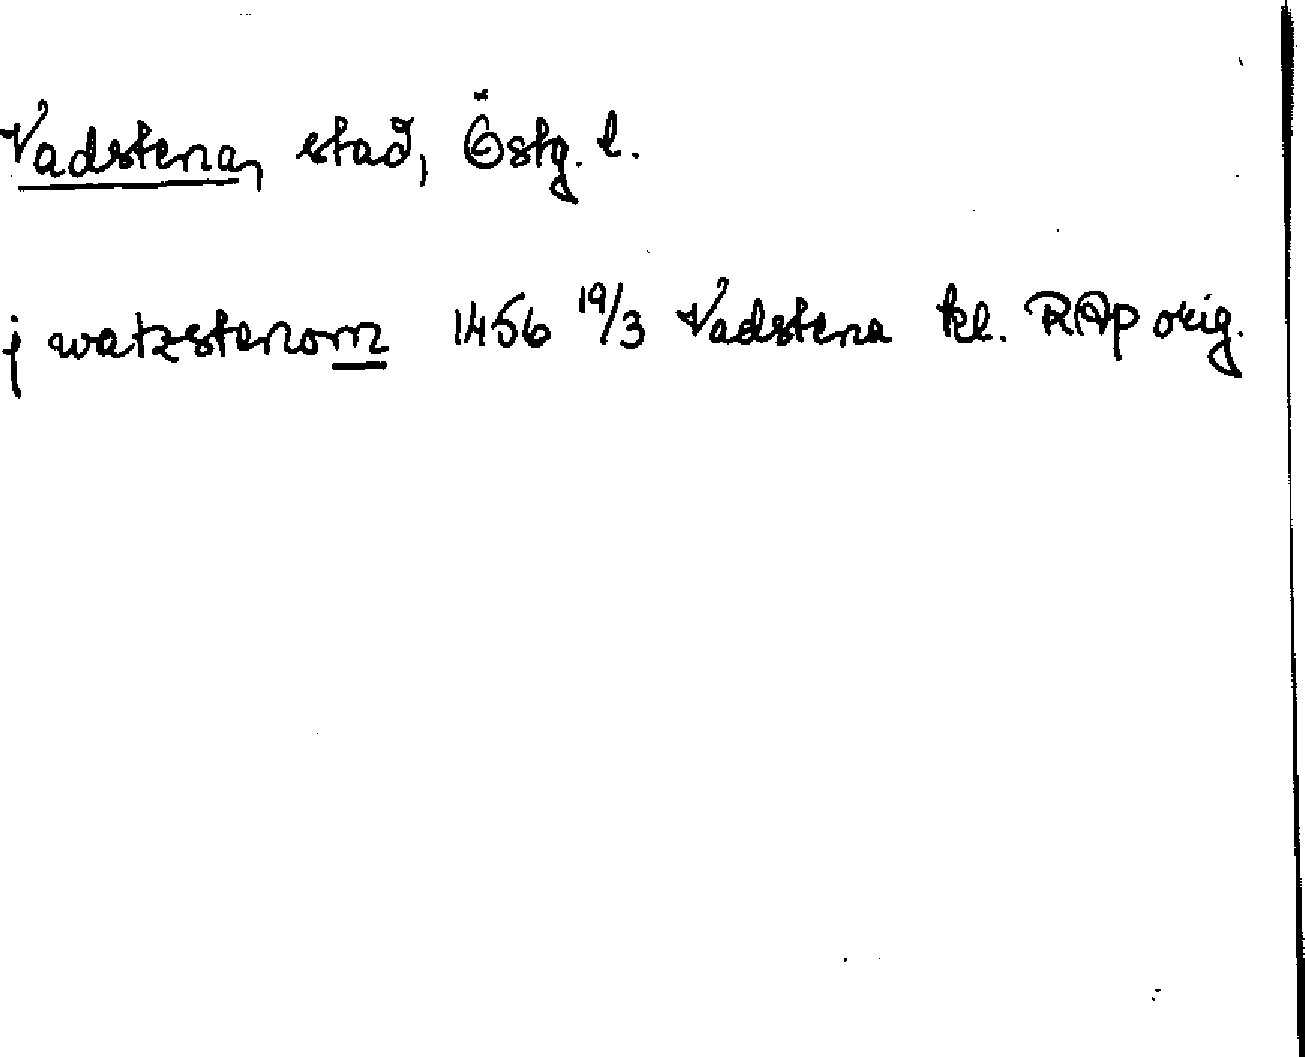 Vadstena, stad, Östg. l.
j watzstenom 1456 19/3 Vadstena kl. RAp orig.